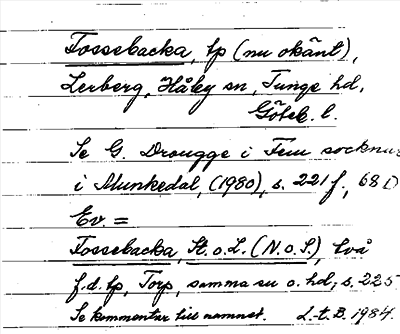 Fossebacka, tp (nu okänt),
Lerberg, Håby sn, Tunge hd,
Göteb. l.
Se G. Drougge i Fem socknar
i Munkedal, (1980), s. 221 f., 68 D
Ev. =
Fossebacka, St. o. L. (N. o. S.), två
f.d. tp, Torp, samma sn o. hd, s. 225
Se kommentar till namnet. L. t. D. 1984.